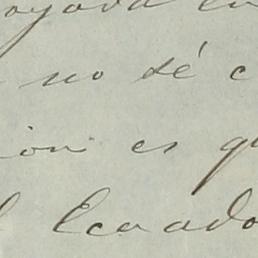 oyada en
no sé c
ion es qu
l Ecuado